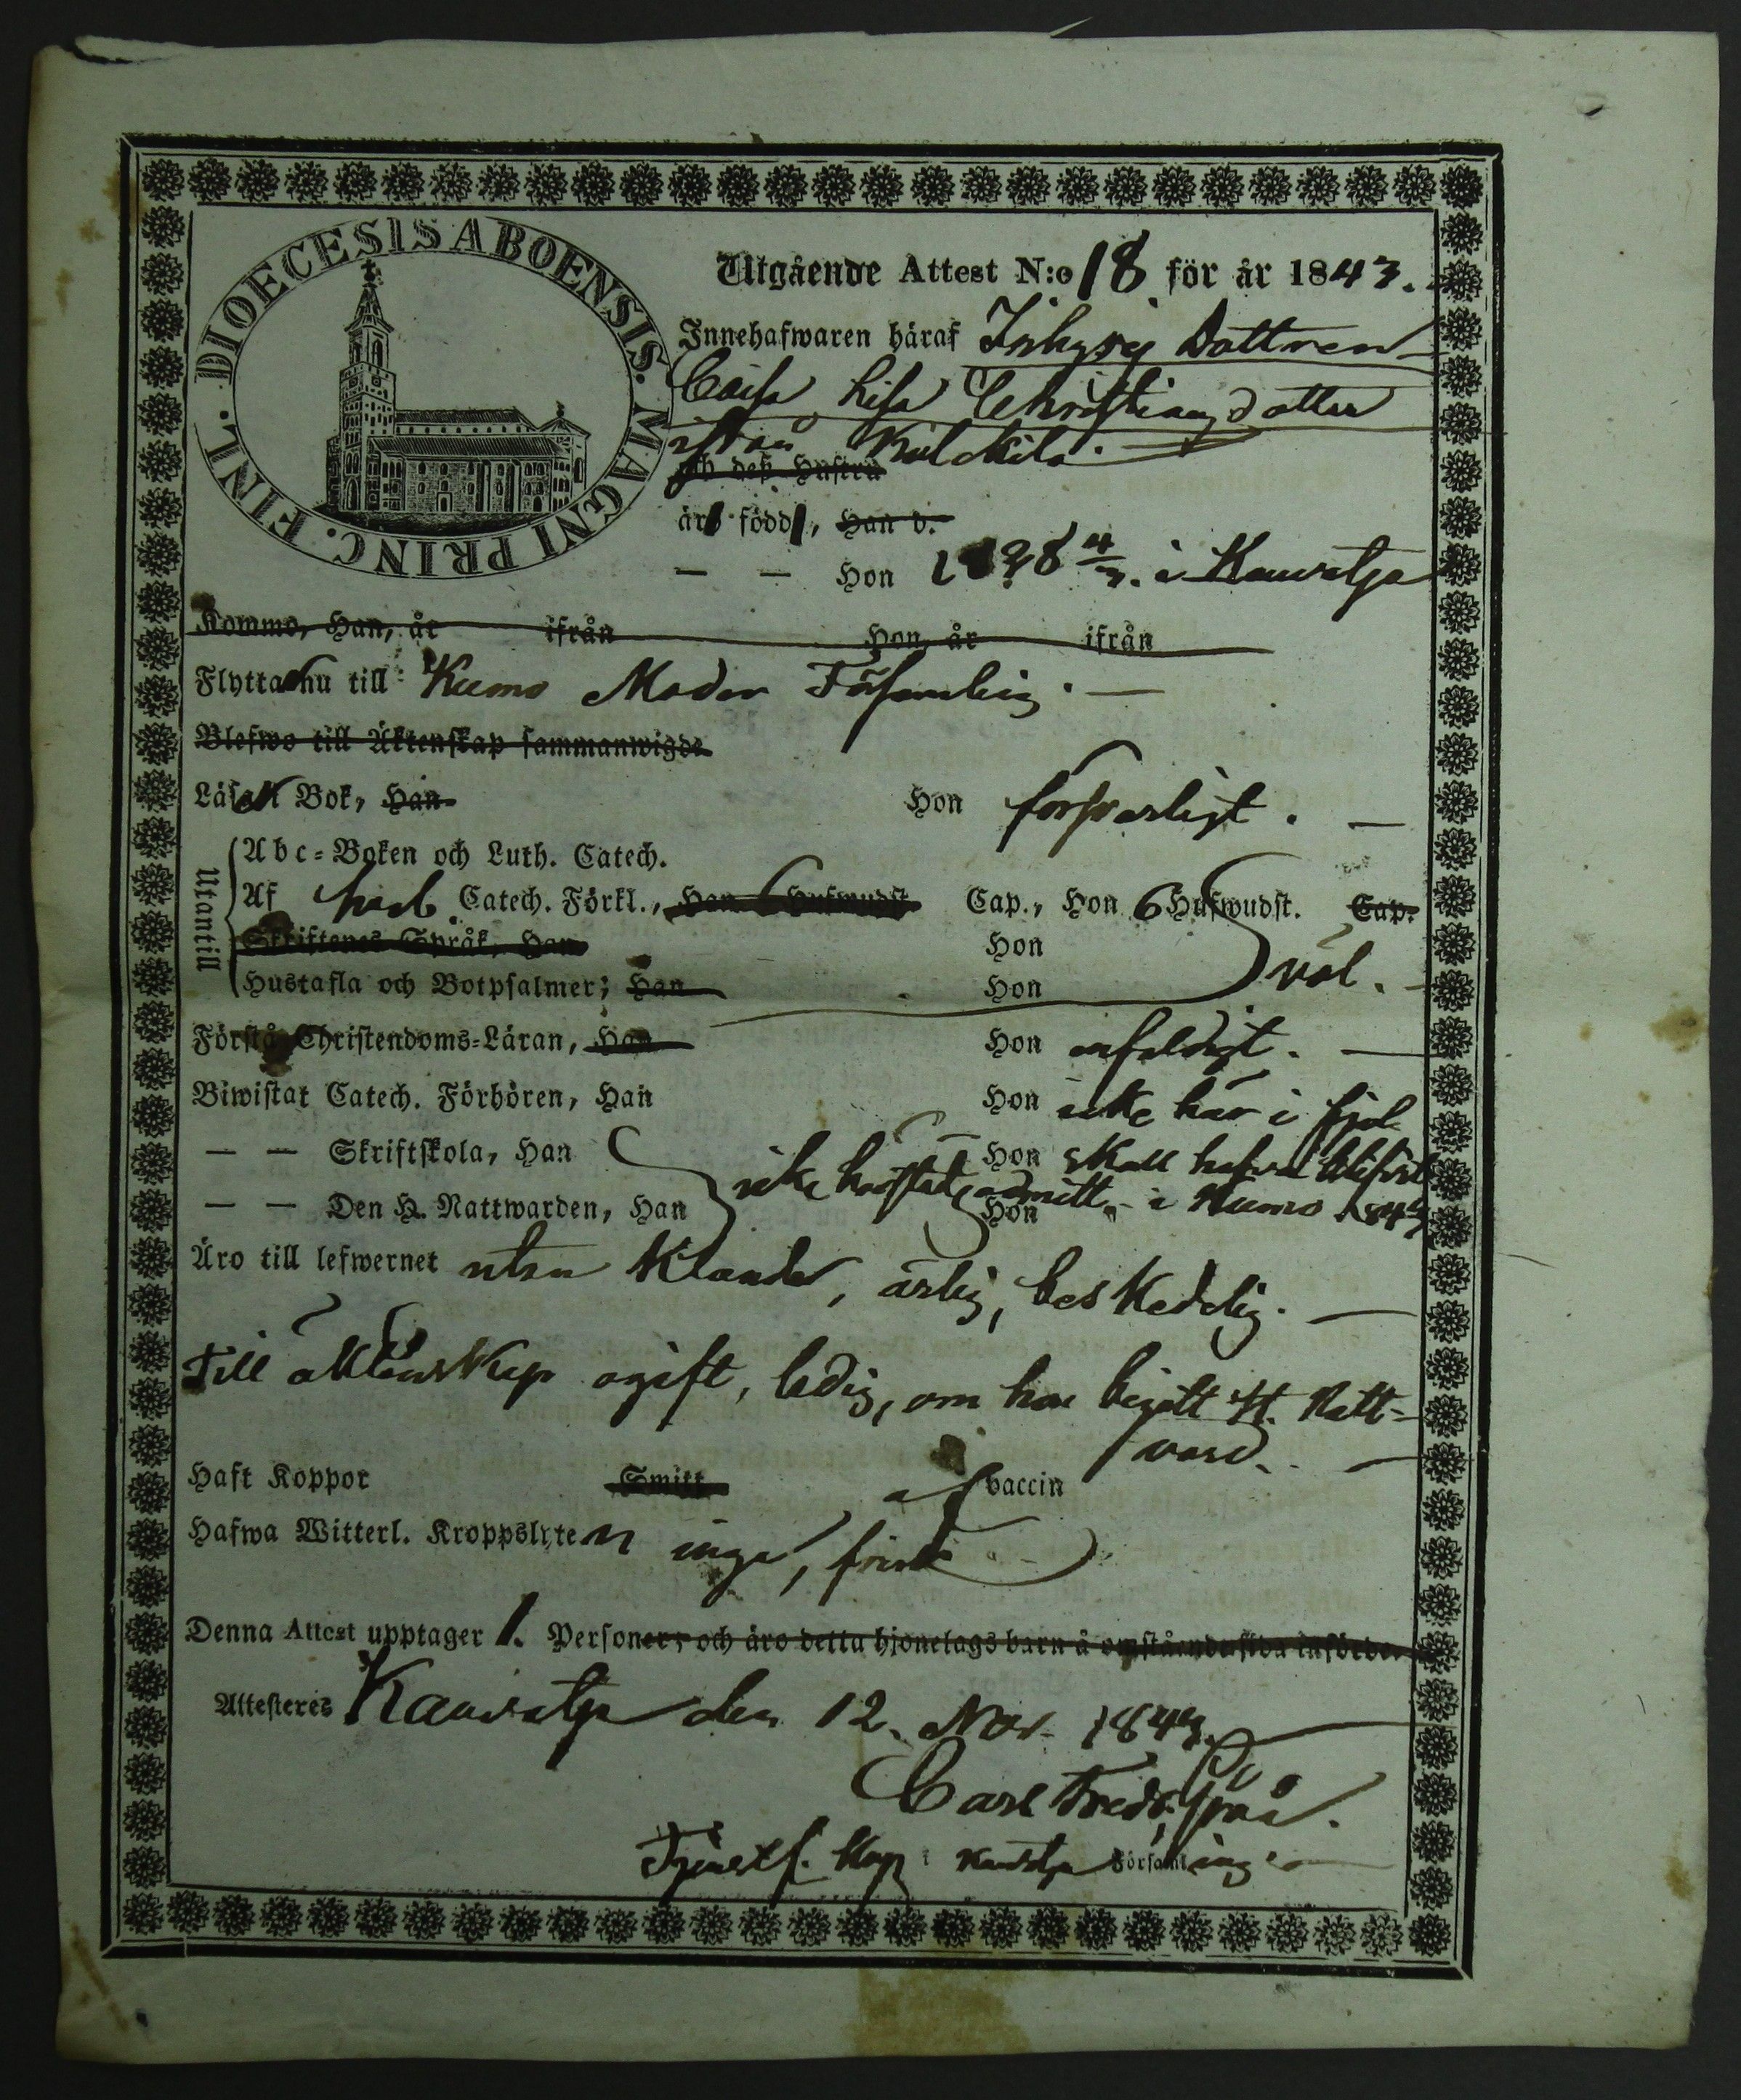 DIOECESIS ABOENSIS. MAGNI PRINC. FINL.
Utgående Attest N:o 18 för år 1843.
Innehafwaren häraf Inhysig Dottren
Caisa Lisa Christiansdotter
ifrån
och deß Hustru
äro född, Han d.
— — Hon 1828 4/3. i Kauvatsa
Kommo, Han, år ifrån Hon, år ifrån
Flyttar nu till Kumo Moder Församling. —
Blefwo till Äktenskap sammanwigde
Läser i Bok, Han Hon försvarligt. —
Utantill
Abc-Boken och Luth. Catech.
Af Catech. Förkl., Han 6 Hufwudst. Cap., Hon 6 Hufwudst. Cap.
Skriftenes Språk, Han Hon
Hustafla och Botpsalmer; Han Hon väl.
Förstå Christendoms-Läran, Han Hon enfaldigt. —
Biwistat Catech. Förhören, Han Hon icke här i fjol
— — Skriftskola, Han Hon skall hafva blifvit
— — Den H. Nattwarden, Han icke härstädes Hon admitt. i Kumo 1843
Äro till lefwernet utan klander, ärlig, beskedelig. —
Till äktenskap ogift, ledig, om hon begått H. Natt-
vard. —
Haft Koppor Smitt af vaccin
Hafwa Witterl. Kroppslyten inga, frisk
Denna Attest upptager 1. Personer, och äro detta hjonelags barn å omstående sida införde.
Attesteres Kauvatsa den 12. Nov. 1843.
Carl Fredr.
Kap i Kauvatsa Församling